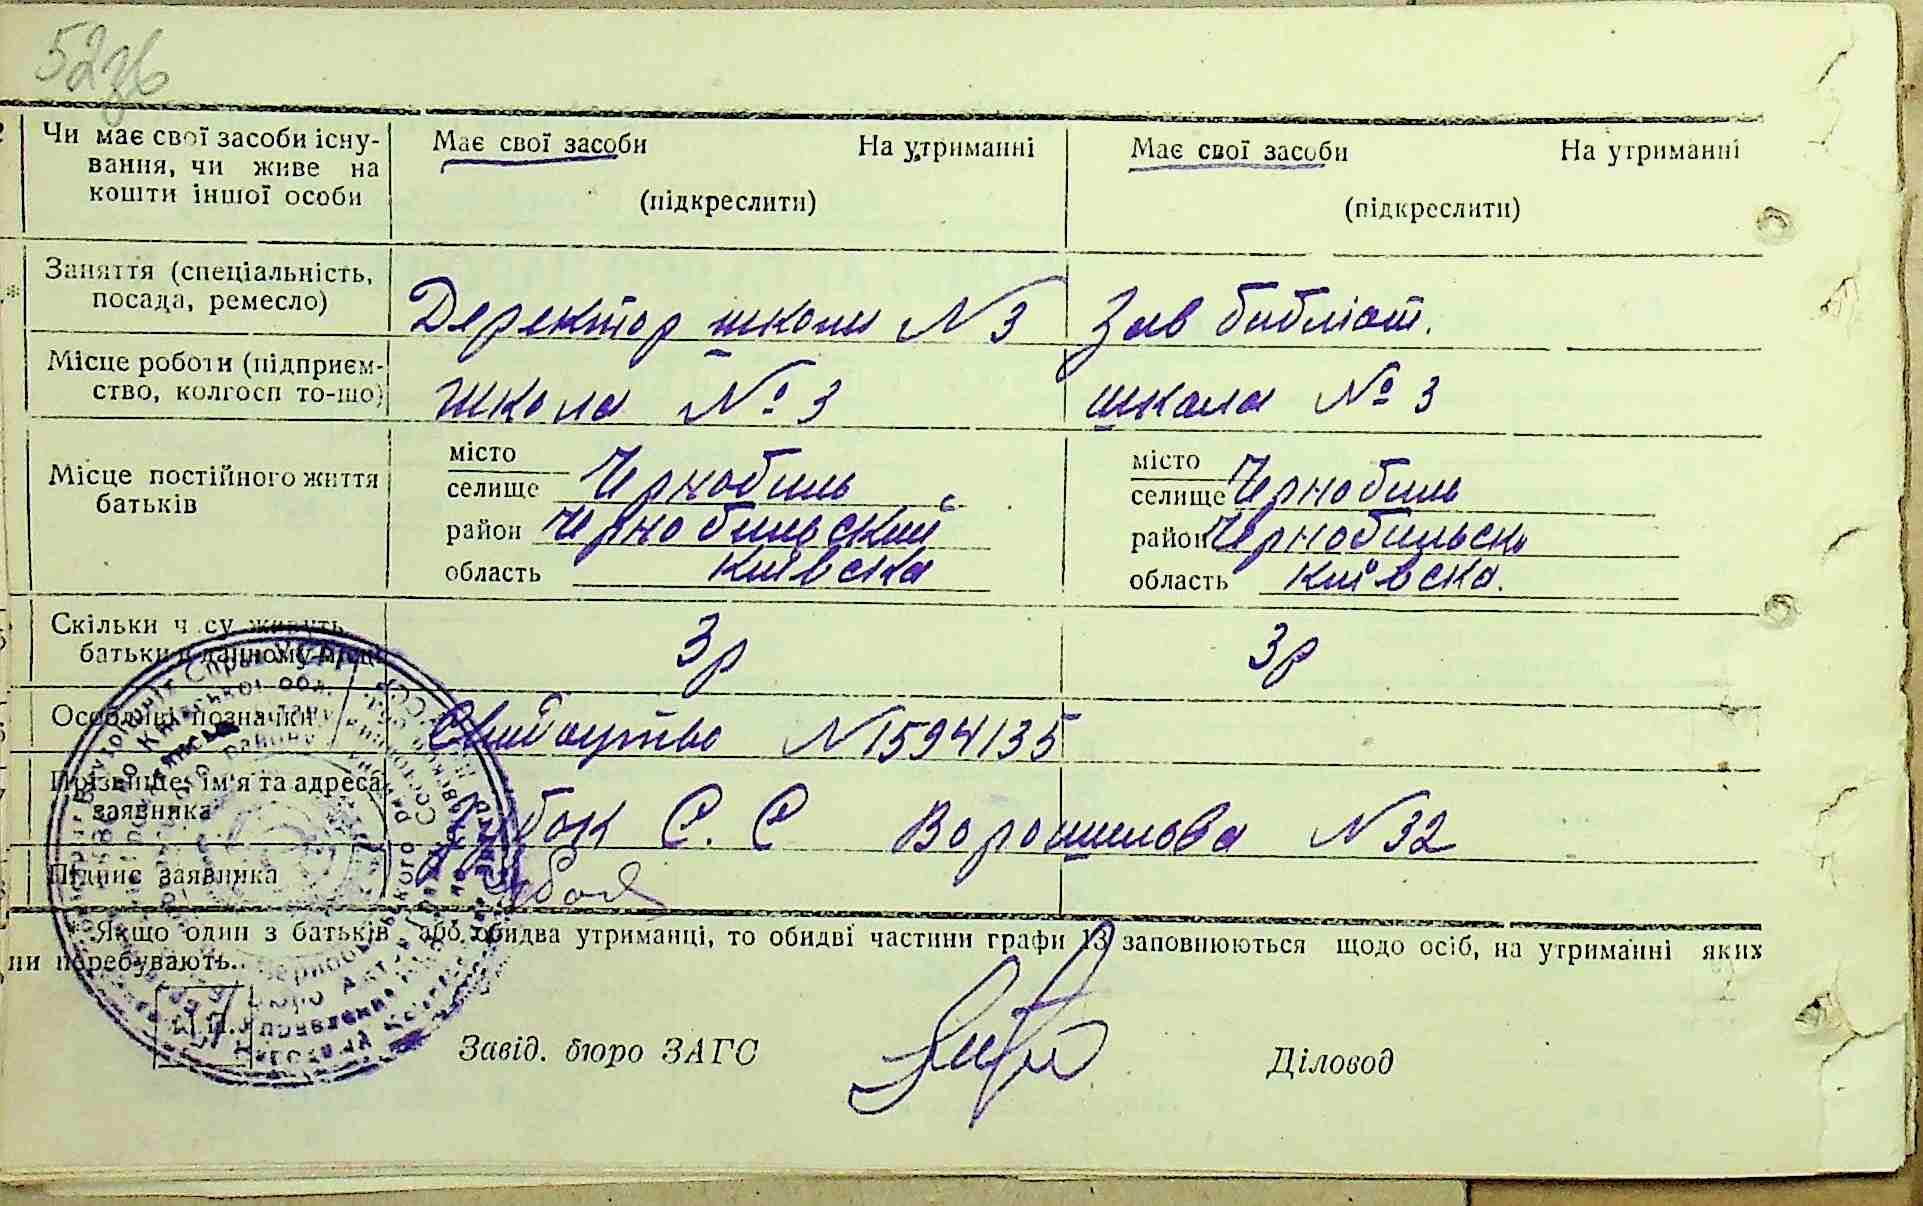 52зв
Чи має свої засоби існу-
вання, чи живе на
кошти іншої особи
Має свої засоби На утриманні
(підкреслити)
Має свої засоби На утриманні
(підкреслити)
Заняття (спеціальність,
посада, ремесло)
Деректор школи N 3
Зав библіот.
Місце роботи (підприєм-
ство, колгосп то-що)
Школа № 3
школа № 3
Місце постійного життя
батьків
місто
селище Чернобиль
район Чернобильский
область Київска
місто
селище Чернобиль
район Чернобильск
область Київска.
Скільки ч су живуть
батьки в данному місці
3р
3р
Особливі позначки
Свидоцтво N1594135
Прізвище, ім'я та адреса
заявника
С. С Ворошилова N32
Підпис заявника
* Якщо один з батьків або обидва утриманці, то обидві частини графи 13 заповнюються щодо осіб, на утриманні яких
ни перебувають.
Завід. бюро ЗАГС
Діловод